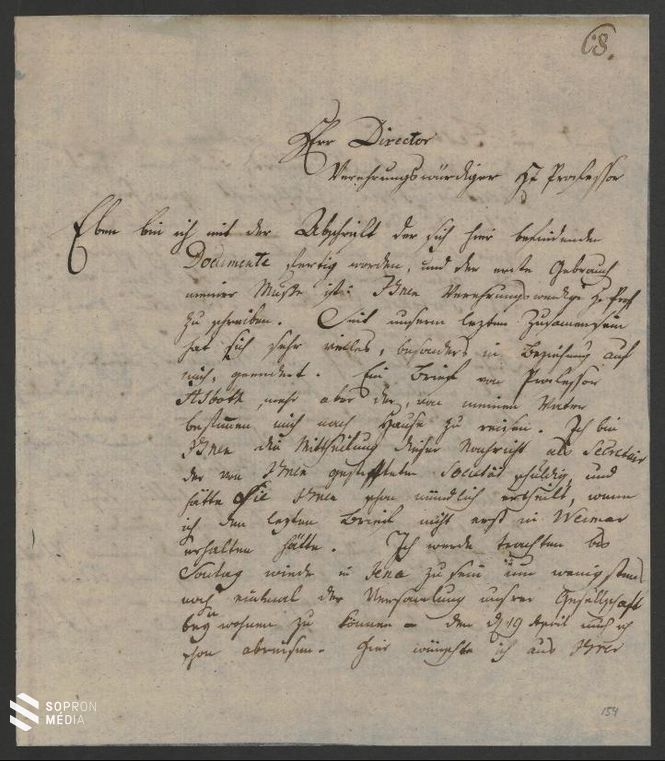 68.
Herr Director
Verehrungswürdiger H Professor
Eben bin ich mit der Abschrift der sich hier befindenden
Documente fertig worden, und der erste Gebrauch
meiner Muße ist: Ihnen Verehrungswürdige H Prof
zu schreiben. Seit unserm lezten Zusamensein
hat sich sehr vieles, besonders in Beziehung auf
mich, geendert. Ein Brief von Professor
Asboth, mehr aber der, von meinem Vater
bestimen mich nach Hause zu reisen. Ich bin
Ihnen die Mittheilung dieser Nachricht als Secretair
der von Ihnen gestifteten Societät schuldig, und
hätte Sie Ihnen schon mündlich ertheilt, wenn
ich den lezten Brief nicht erst in Weimar
erhalten hätte. Ich werde trachten bis
Sontag wieder in Jena zu sein um wenigstens
noch einmal der Versamlung unsrer Gesellschaft
bey wohnen zu können – den 19 April muß ich
schon abreisen. Hier wünschte ich aus Ihrer
SOPRON
MÉDIA
154